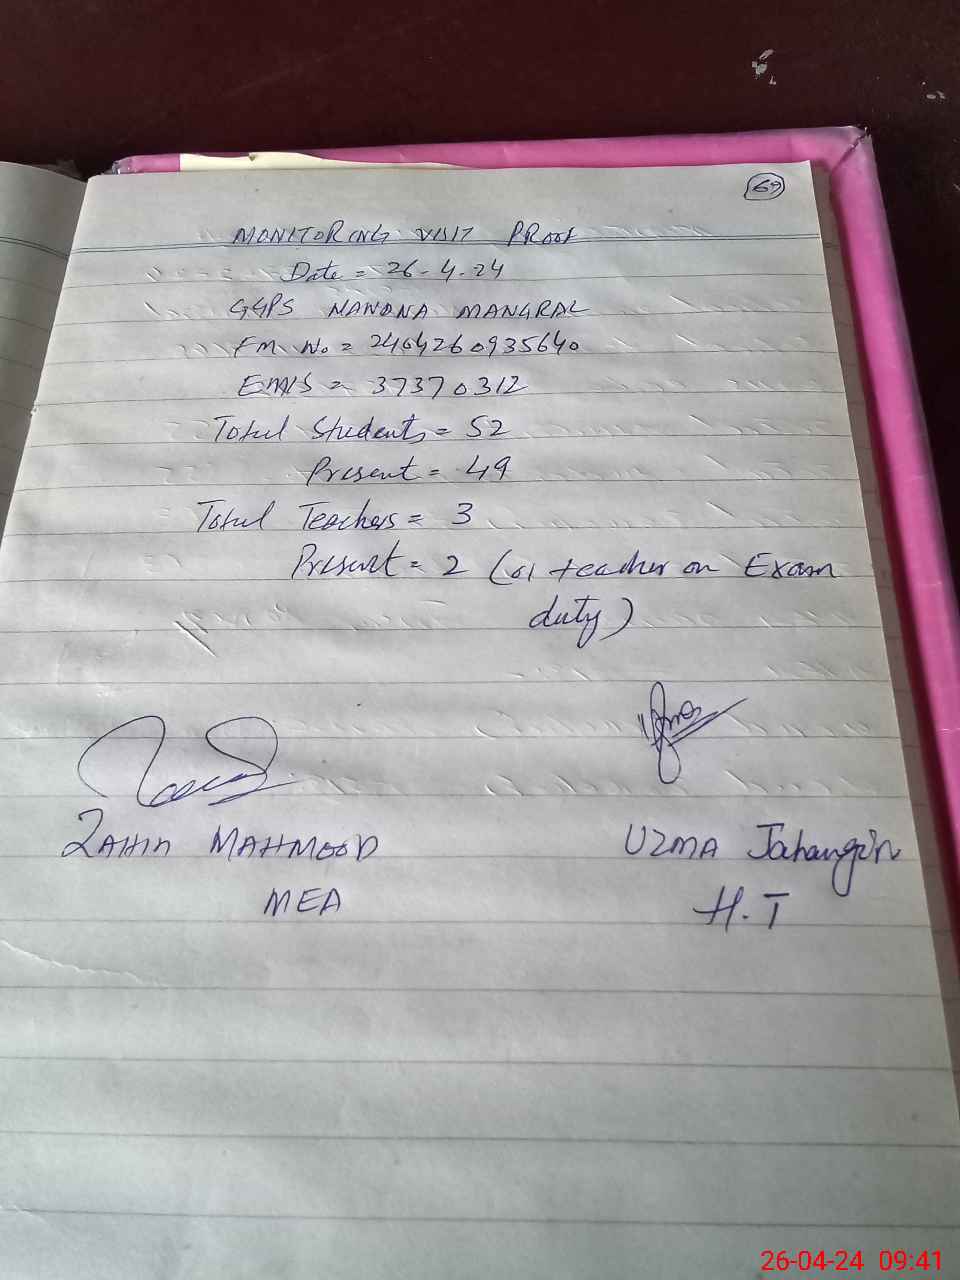 69
MONITORING VISIT PROOF
Date = 26-4-24
GGPS NAWANA MANGRAL
FM No = 2404260935640
EMIS = 37370312
Total Students = 52
Present = 49
Total Teachers = 3
Present = 2 (01 teacher on Exam
duty)
ZAHID MAHMOOD
MEA
UZMA Jahangir
H.T
26-04-24 09:41